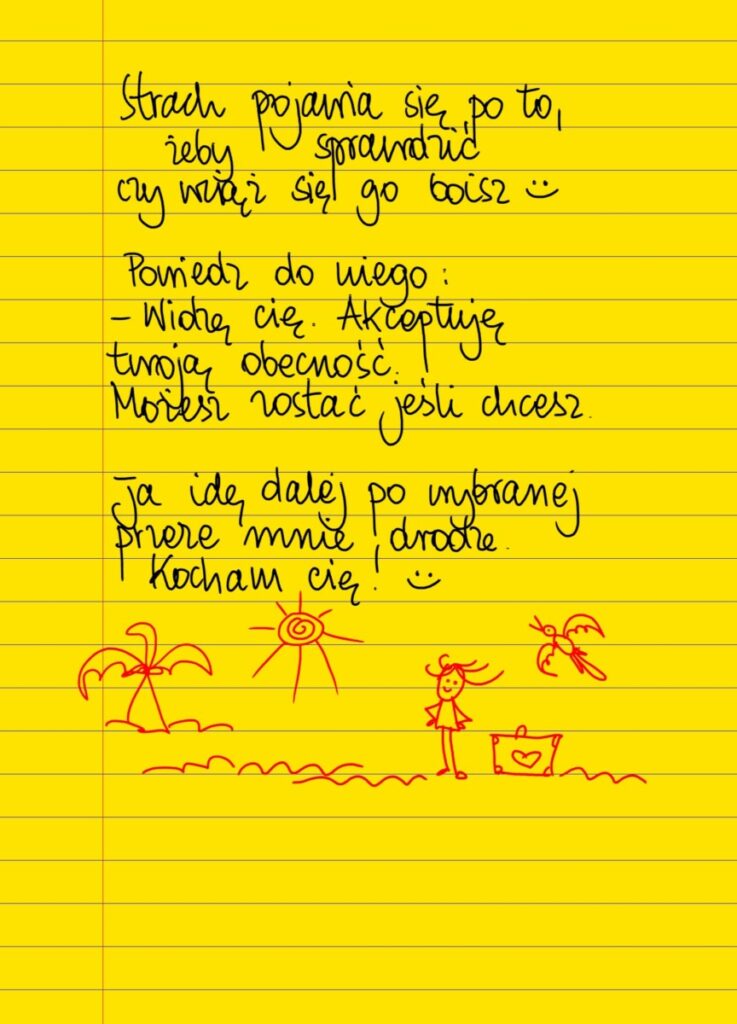 Strach pojawia się po to,
żeby sprawdzić
czy wciąż się go boisz :)
Powiedz do niego:
– Widzę cię. Akceptuję
twoją obecność.
Możesz zostać jeśli chcesz.
Ja idę dalej po wybranej
przeze mnie drodze.
Kocham cię! :)